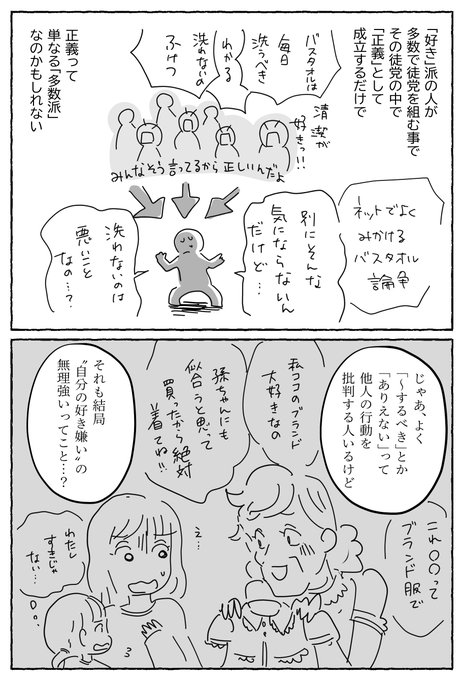 「好き」派の人が
多数で徒党を組む事で
その徒党の中で
「正義」として
成立するだけで
バスタオルは
毎日
洗うべき
わかる
洗わないの
ふけつ
清潔が
好きっ!!
みんなそう言ってるから正しいんだよ
正義って
単なる「多数派」
なのかもしれない
ネットでよく
みかける
バスタオル
論争
別にそんな
気にならないん
だけど…
洗わないのは
悪いこと
なの…?
じゃあ、よく
「〜するべき」とか
「ありえない」って
他人の行動を
批判する人いるけど
私ココのブランド
大好きなの
孫ちゃんにも
似合うと思って
買ったから絶対
着てね!!
それも結局
〝自分の好き嫌い〟の
無理強いってこと…?
これ〇〇って
ブランド服で
え…
わたし
すきじゃ
ない…